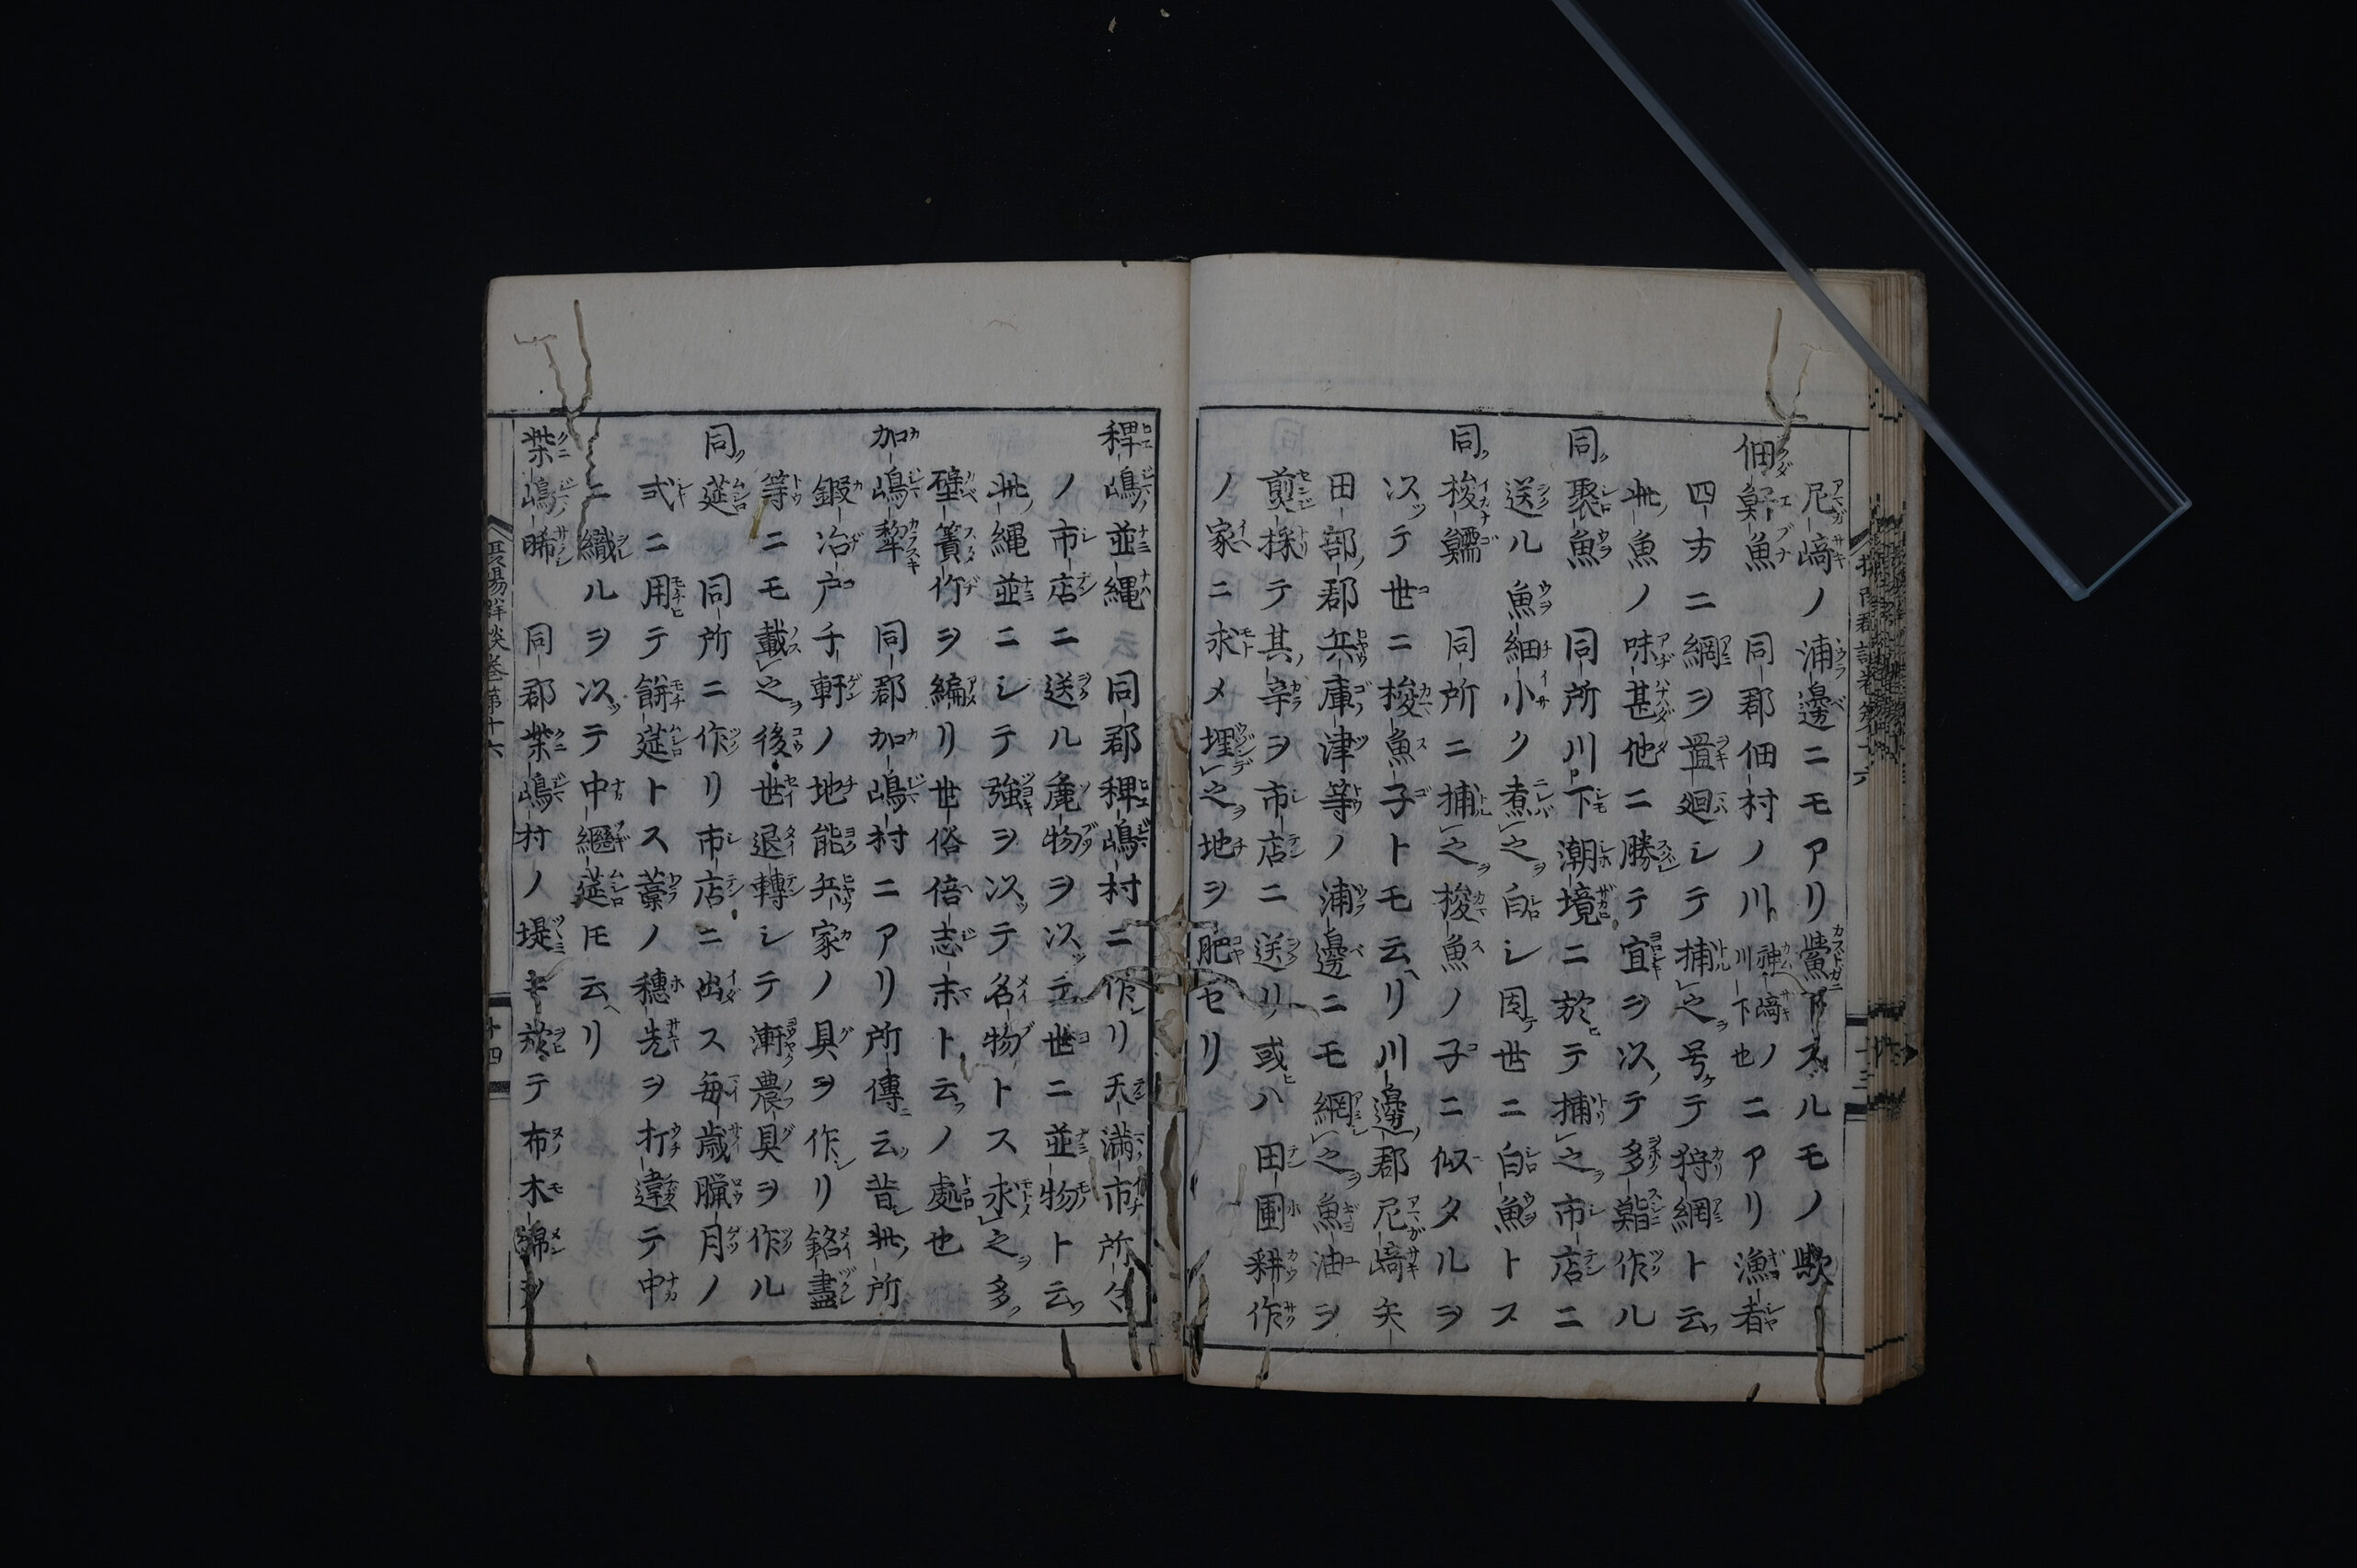 尼﨑ノ浦邊ニモアリ鱟下スルモノ歟
佃𩵋魚 同郡佃村ノ川神﨑ノ川下也ニアリ漁者
四方ニ網ヲ置廻シテ捕之号テ狩網ト云
此魚ノ味甚他ニ勝テ宜ヲ以テ多鮨作ル
同聚魚 同所川下潮境ニ於テ捕之市店ニ
送ル魚細小ク煮之白シ因世ニ白魚トス
同梭鱬 同所ニ捕之梭魚ノ子ニ似タルヲ
以テ世ニ梭魚子トモ云リ川邊郡尼﨑矢
田部郡兵庫津等ノ浦邊ニモ網之魚油ヲ
煎採テ其辛ヲ市店ニ送リ或ハ田圃耕作
ノ家ニ求メ埋之地ヲ肥セリ
稗嶋並縄 同郡稗嶋村ニ作リ天満市所々
ノ市店ニ送ル麁物ヲ以テ世ニ並物ト云
此縄並ニシテ強ヲ以テ名物トス求之多
壁簀竹ヲ編リ世俗倍志末ト云ノ處也
加嶋犂 同郡加嶋村ニアリ所傳云昔此所
鍜冶戸千軒ノ地能兵家ノ具ヲ作リ銘盡
等ニモ載之後世退轉シテ漸農具ヲ作ル
同莚 同所ニ作リ市店ニ出ス毎歳臘月ノ
式ニ用テ餅莚トス藁ノ穗先ヲ打違テ中
ニ織ルヲ以テ中繼莚トモ云リ
柴嶋晞 同郡柴嶋村ノ堤ニ於テ布木綿ヲ
十四